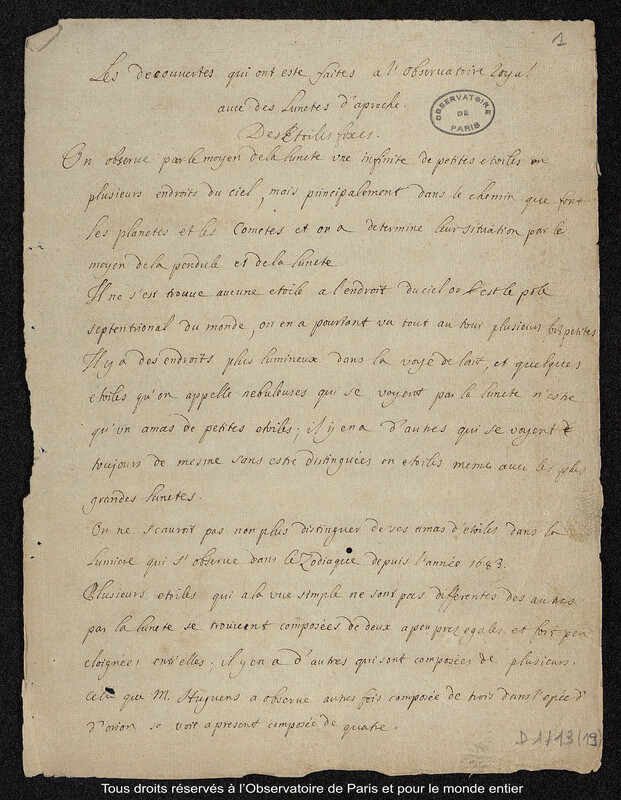 1
Les decouvertes qui ont esté faites a l'Observatoire Royal
avec des Lunetes d'aproche.
OBSERVATOIRE DE PARIS
Des Etoiles fixes.
On observe par le moyen de la lunete une infinite de petites etoiles en
plusieurs endroits du ciel, mais principalement dans le chemin que font
les planetes et les Cometes et on a determine leur situation par le
moyen de la pendule et de la lunete
Il ne s'est trouve aucune etoile a l'endroit du ciel ou est le pole
septentrional du monde, on en a pourtant vu tout au tour plusieurs petites
Il y a des endroits plus lumineux dans la voye de lait, et quelques
etoiles qu'on appelle nebuleuses qui se voyent par la lunete n'estre
qu'un amas de petites etoiles; il y en a d'autres qui se voyent
toujours de mesme sans estre distinguées en etoiles meme avec les plus
grandes lunetes.
On ne scauroit pas non plus distinguer de ses amas d'etoiles dans la
Lumiere qui s'observe dans le Zodiaque depuis l'année 1683.
Plusieurs etoiles qui a la vue simple ne sont pas differentes des autres
par la lunete se trouvent composées de deux a peu prez egales et fort peu
eloignées entr'elles; il y en a d'autres qui sont composées de plusieurs.
Celle que M. Huguens a observe autres fois composée de trois dans l'epée d'
d'orion se voit a present composée de quatre.
D1/13(19)
Tous droits réservés à l'Observatoire de Paris et pour le monde entier